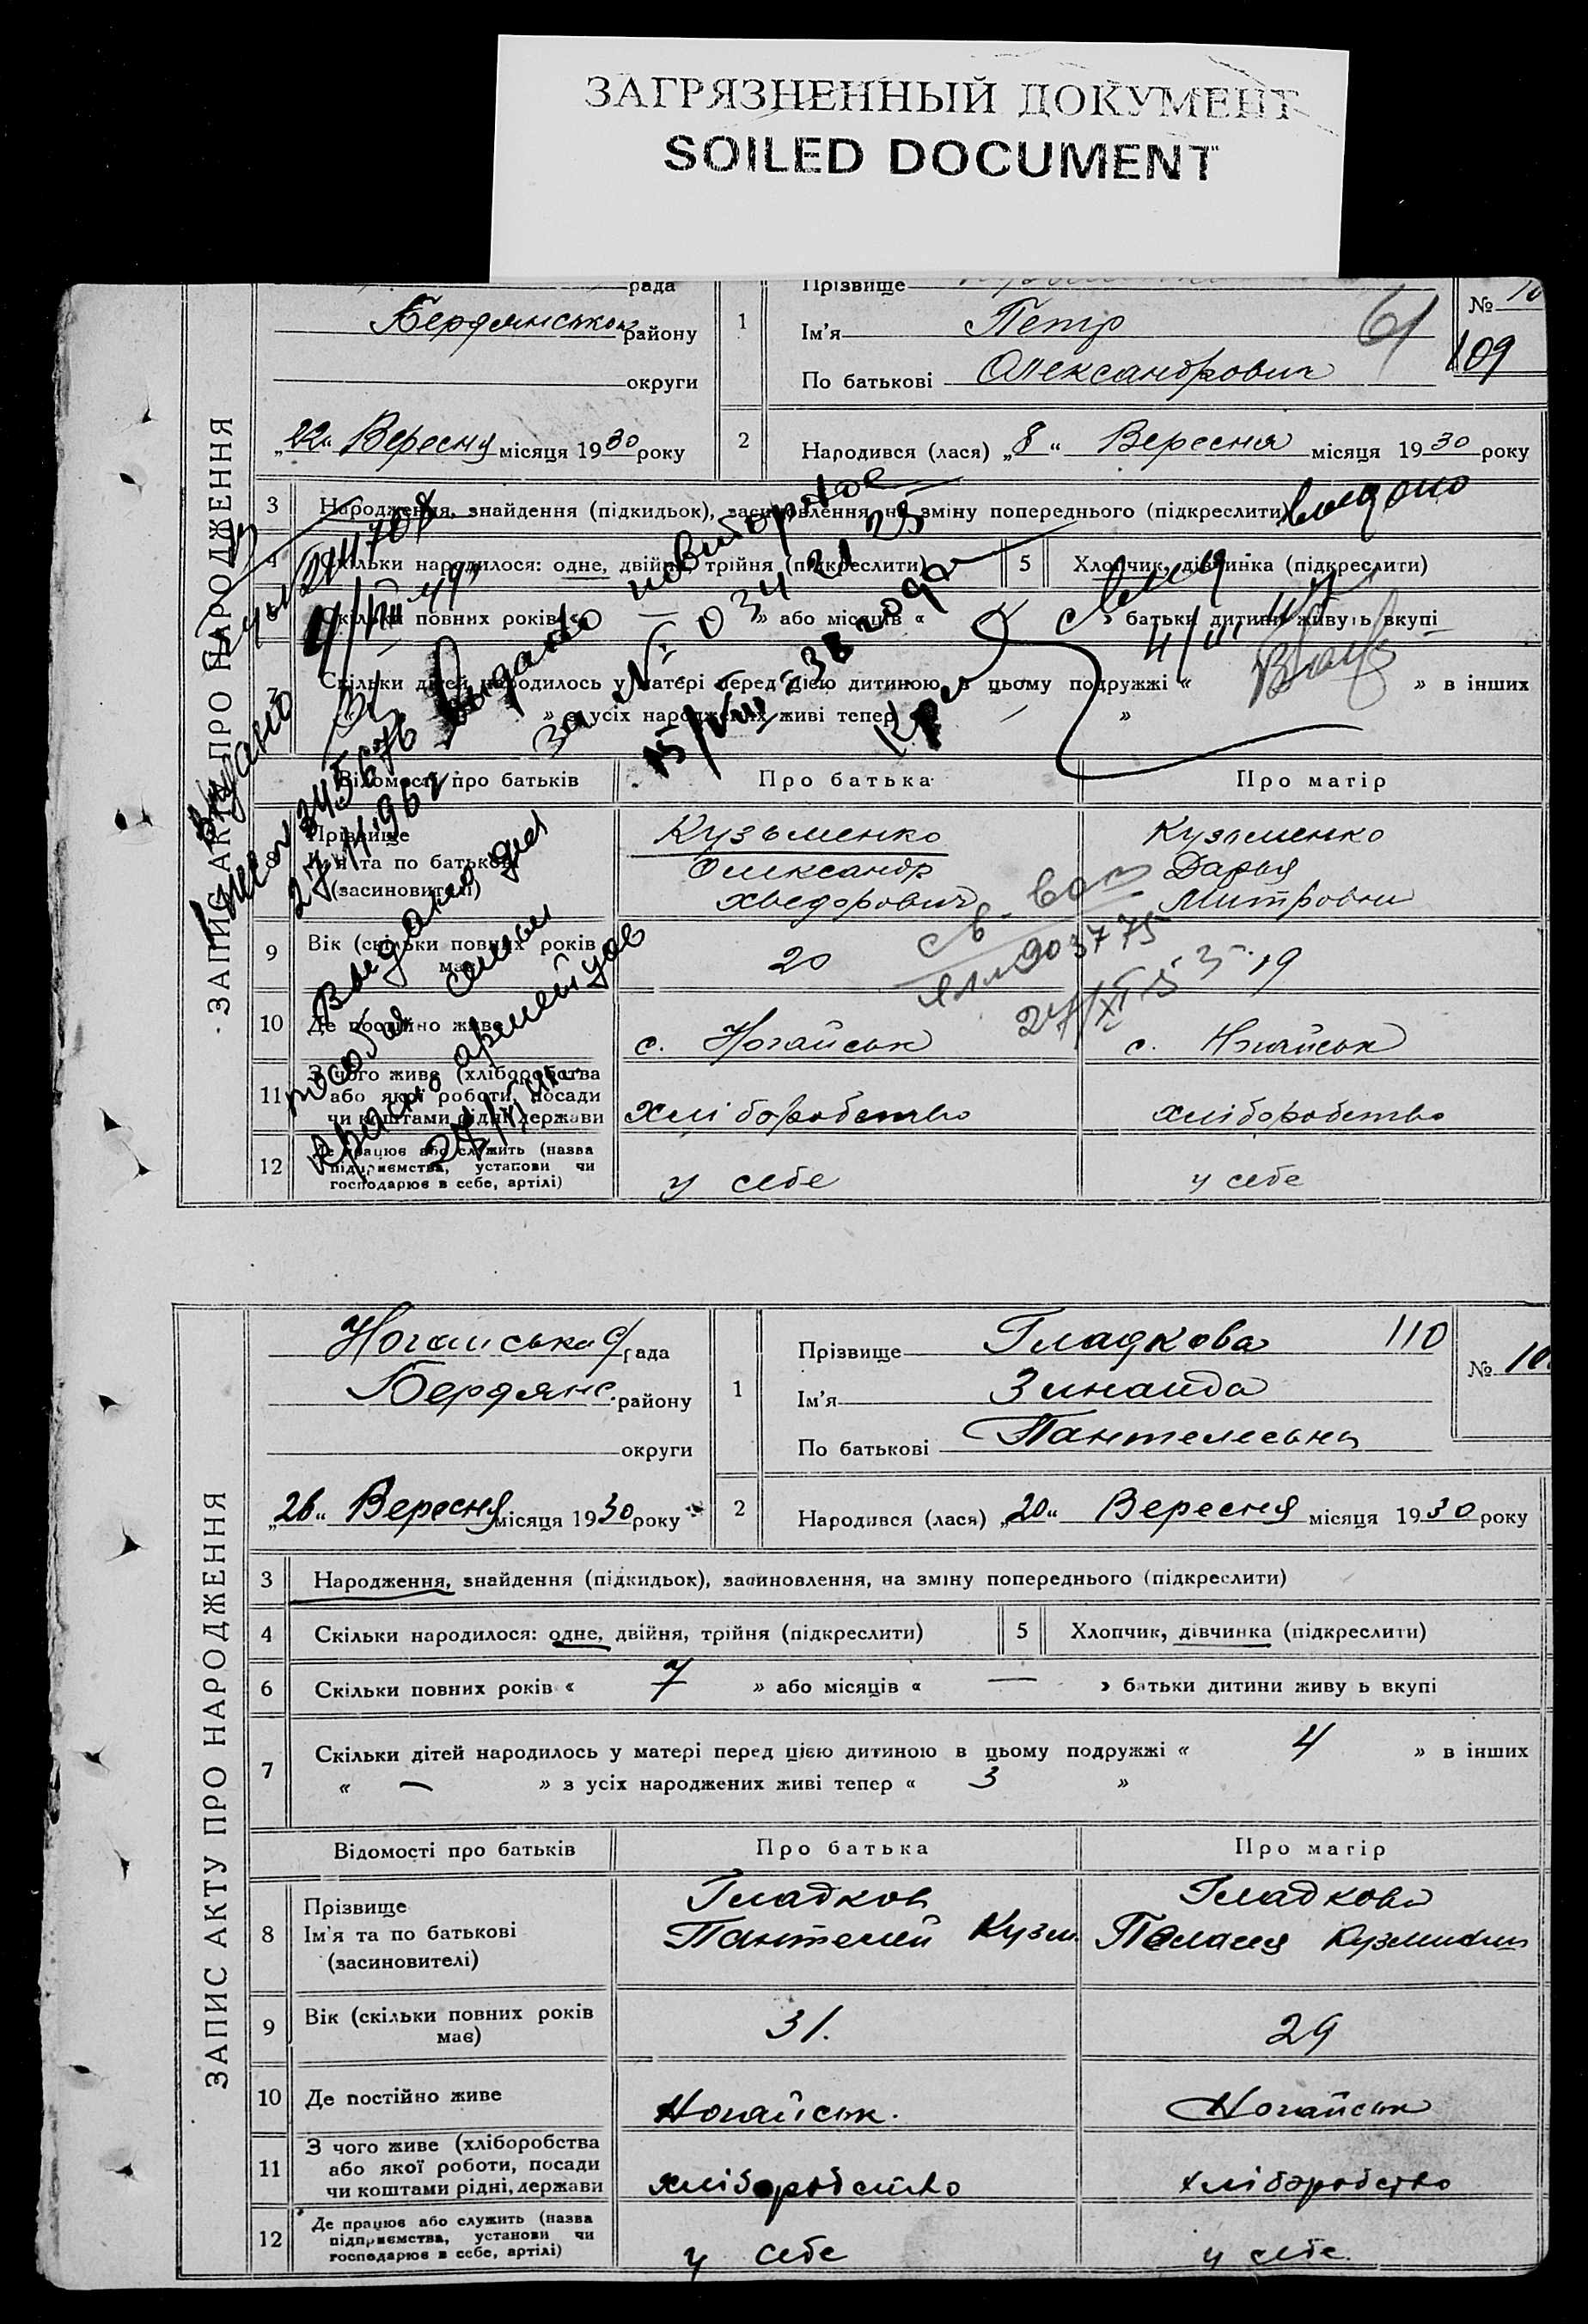 ЗАГРЯЗНЕННЫЙ ДОКУМЕНТ
SOILED DOCUMENT
ЗАПИС АКТУ ПРО НАРОДЖЕННЯ
рада
Бердянського району
округи
„22“ Вересня місяця 1930 року
1
Прізвище
Ім'я Петр
По батькові Олександрович
61
№ 10
109
2
Народився (лася) „8“ Вересня місяця 1930 року
3 Народження, знайдення (підкидьок), засиновлення, на зміну попереднього (підкреслити)
4 Скільки народилося: одне, двійня, трійня (підкреслити) 5 Хлопчик, дівчинка (підкреслити)
Скільки повних років « — » або місяців « » батьки дитини живуть вкупі
7 Скільки дітей народилось у матері перед цією дитиною в цьому подружжі « » в інших
» з усіх народжених живі тепер »
Выдано повторное
за № 034 21 25
15/VIII-38 года
выдано
Выдано
345676
Выдано для
пособия семьи
красно армейцев
св. во
903775
Відомості про батьків Про батька Про матір
8 Прізвище
Ім'я та по батькові
(засиновителі)
Кузьменко
Олександр
Хведорович
Кузьменко
Дарья
Митровна
9 Вік (скільки повних років має) 20 19
10 Де постійно живе с. Ногайськ с. Ногайськ
11 З чого живе (хліборобства
або якої роботи, посади
чи коштами рідні, держави
хліборобство хліборобство
12 Де працює або служить (назва
підприємства, установи чи
господарює в себе, артілі)
у себе у себе
ЗАПИС АКТУ ПРО НАРОДЖЕННЯ
Ногайська с/рада
Бердянс. району
округи
„26“ Вересня місяця 1930 року
1
Прізвище Гладкова 110
Ім'я Зинаида
По батькові Пантелеевна
№ 10
2
Народився (лася) „20“ Вересня місяця 1930 року
3 Народження, знайдення (підкидьок), засиновлення, на зміну попереднього (підкреслити)
4 Скільки народилося: одне, двійня, трійня (підкреслити) 5 Хлопчик, дівчинка (підкреслити)
6 Скільки повних років « 7 » або місяців « — » батьки дитини живуть вкупі
7 Скільки дітей народилось у матері перед цією дитиною в цьому подружжі « 4 » в інших
« — » з усіх народжених живі тепер « 3 »
Відомості про батьків Про батька Про матір
8 Прізвище
Ім'я та по батькові
(засиновителі)
Гладков
Пантелей Кузм.
Гладкова
Пелагея
9 Вік (скільки повних років має) 31. 29
10 Де постійно живе Ногайськ. Ногайськ
11 З чого живе (хліборобства
або якої роботи, посади
чи коштами рідні, держави
хліборобство хліборобство
12 Де працює або служить (назва
підприємства, установи чи
господарює в себе, артілі)
у себе у себе